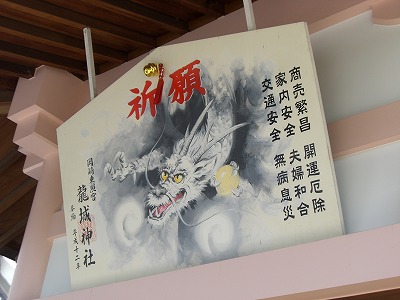 祈願
商売繁昌　開運厄除
家内安全　夫婦和合
交通安全　無病息災
岡崎東照宮
龍城神社
奉納　平成十二年